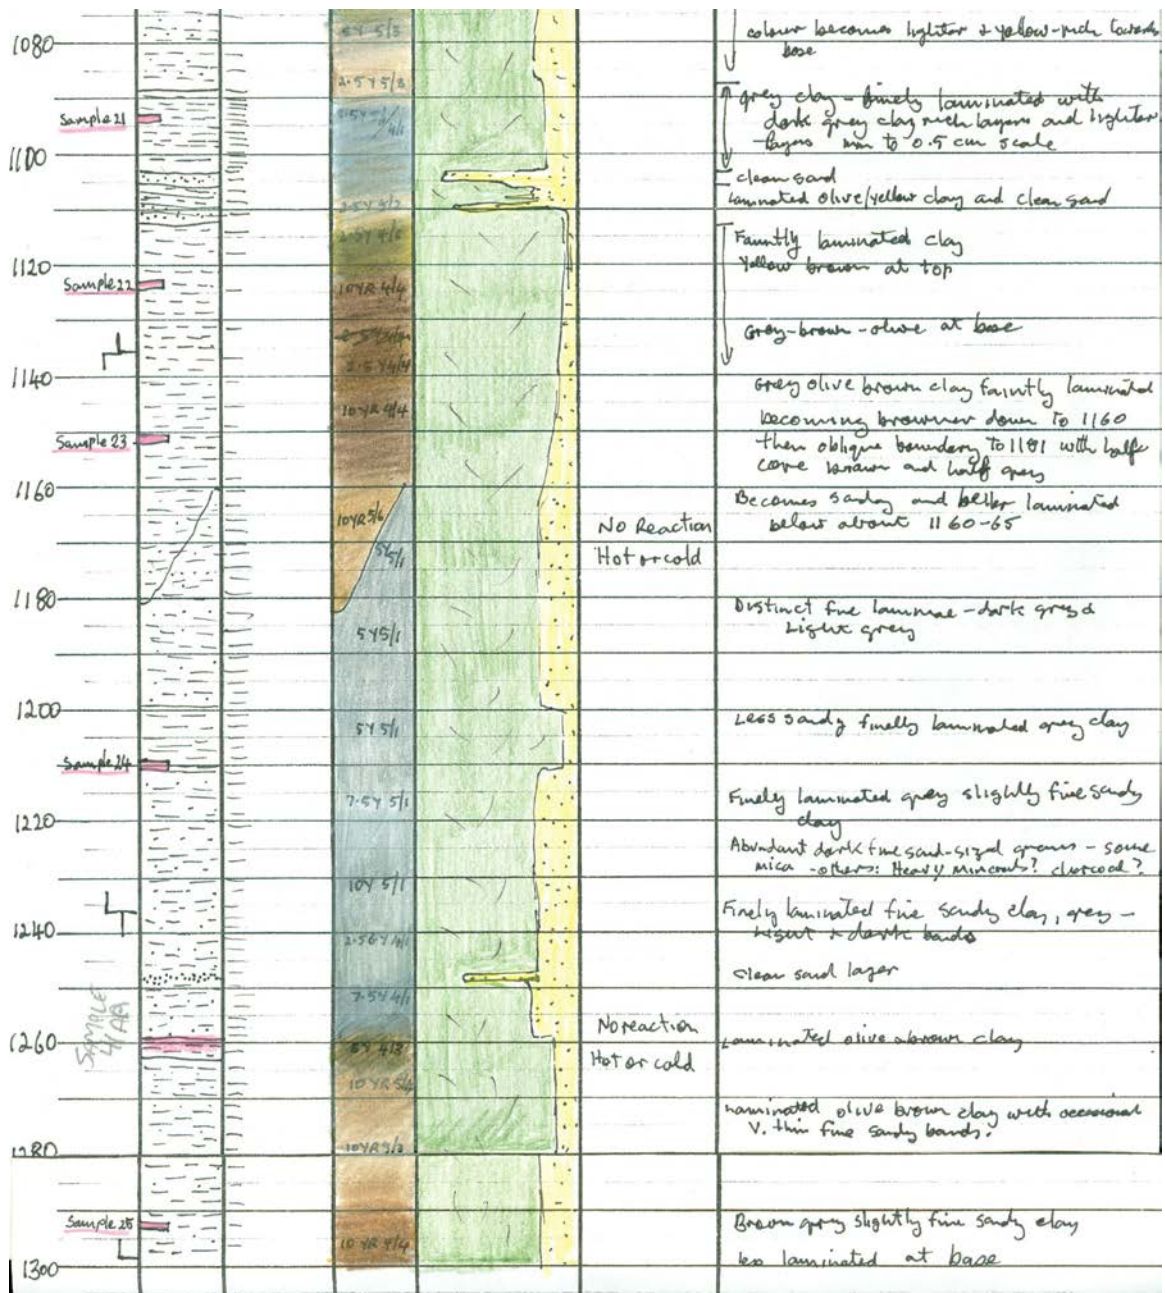 1080
1100
1120
1140
1160
1180
1200
1220
1240
1260
1280
1300
Sample 21
Sample 22
Sample 23
Sample 24
SAMPLE
Sample 25
5Y 5/3
2.5Y 5/3
10YR 4/4
2.5Y 4/4
10YR 4/4
10YR 5/6
5Y 5/1
5Y 5/1
5Y 5/1
7.5Y 5/1
10Y 5/1
7.5Y 4/1
5Y 4/3
10YR 4/4
No Reaction
Hot or cold
No reaction
Hot or cold
colour becomes lighter & yellow-rich towards
base
grey clay - finely laminated with
dark grey clay rich layers and lighter
layers mm to 0.5 cm scale
clean sand
Laminated olive/yellow clay and clean sand
Faintly laminated clay
Yellow brown at top
Grey-brown-olive at base
Grey olive brown clay faintly laminated
becoming browner down to 1160
then oblique boundary to 1181 with half
core brown and half grey
Becomes sandy and better laminated
below about 1160-65
Distinct fine laminae - dark grey &
Light grey
Less sandy finely laminated grey clay
Finely laminated grey slightly fine sandy
clay
Abundant dark fine sand-sized grains - some
mica - others: Heavy minerals? charcoal?
Finely laminated fine sandy clay, grey -
light & dark bands
Clean sand layer
Laminated olive brown clay
Laminated olive brown clay with occasional
V. thin fine sandy bands.
Brown grey slightly fine sandy clay
less laminated at base